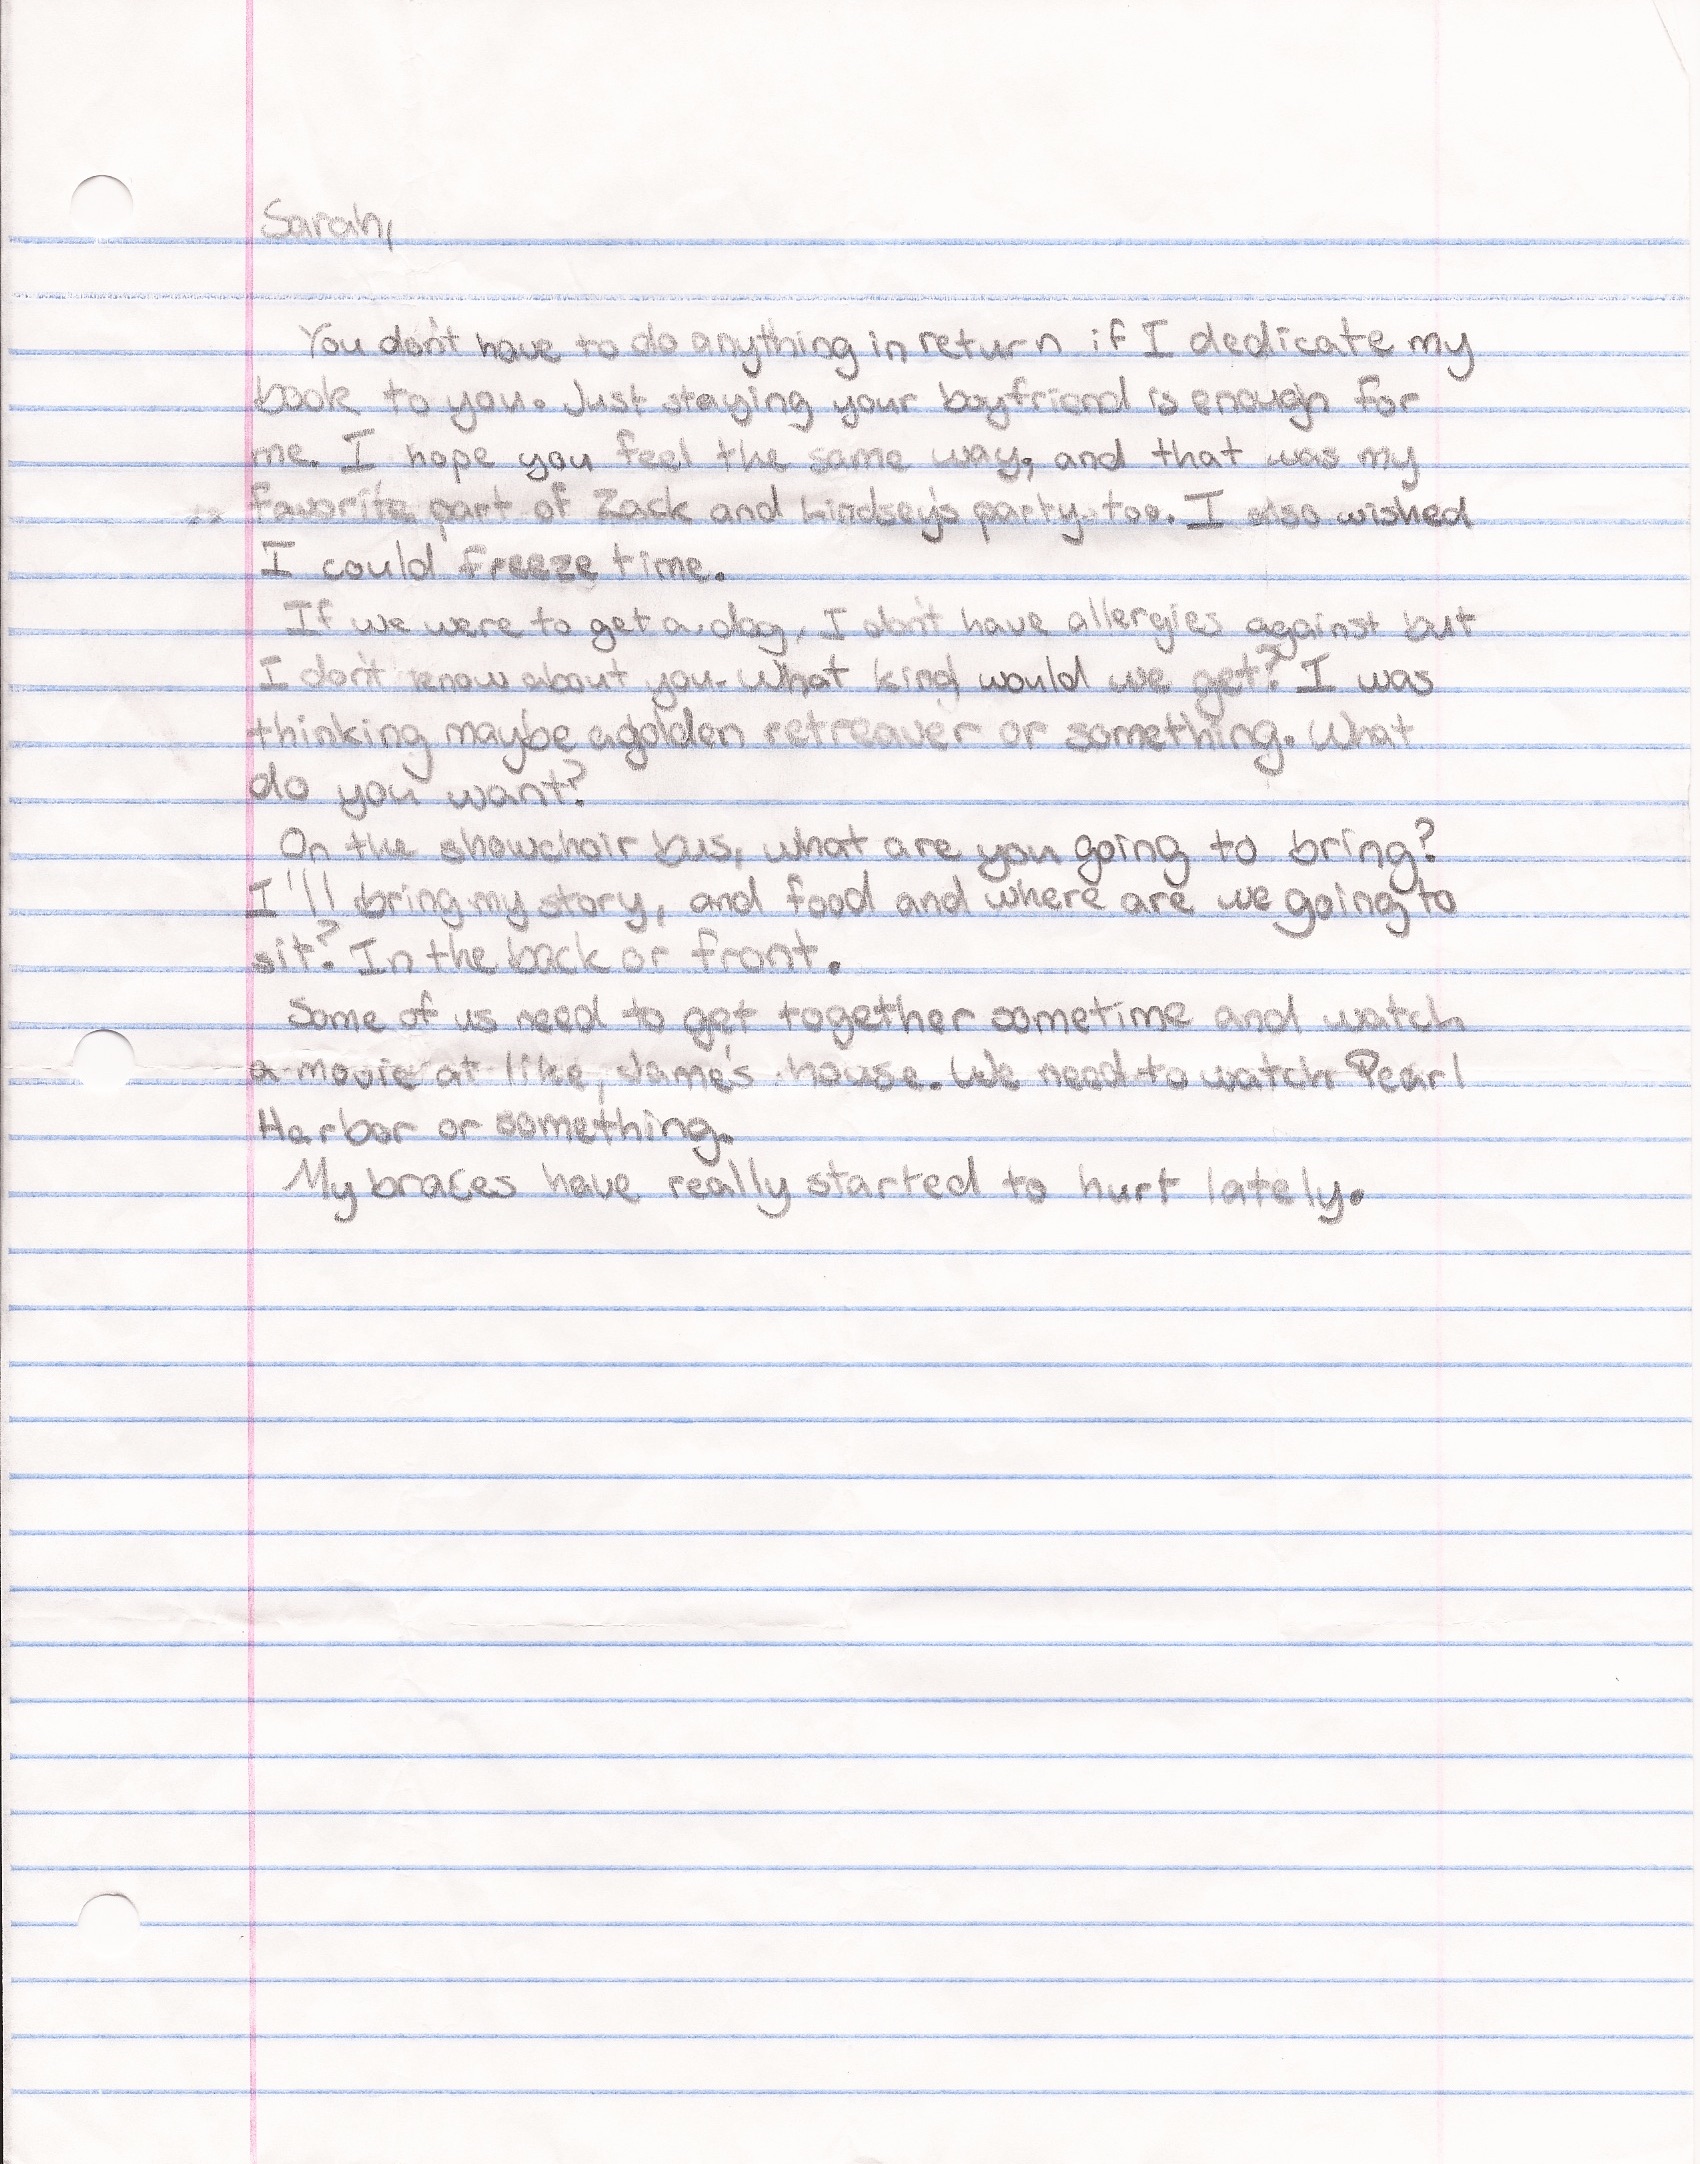 Sarah,
You don't have to do anything in return if I dedicate my
book to you. Just staying your boyfriend is enough for
me. I hope you feel the same way, and that was my
favorite part of Zack and Lindsey's party too. I also wished
I could freeze time.
If we were to get a dog, I don't have allergies against but
I don't know about you. What kind would we get? I was
thinking maybe a golden retreaver or something. What
do you want?
On the showchoir bus, what are you going to bring?
I'll bring my story, and food and where are we going to
sit? In the back or front.
Some of us need to get together sometime and watch
a movie at like, Jame's house. We need to watch Pearl
Harbor or something.
My braces have really started to hurt lately.